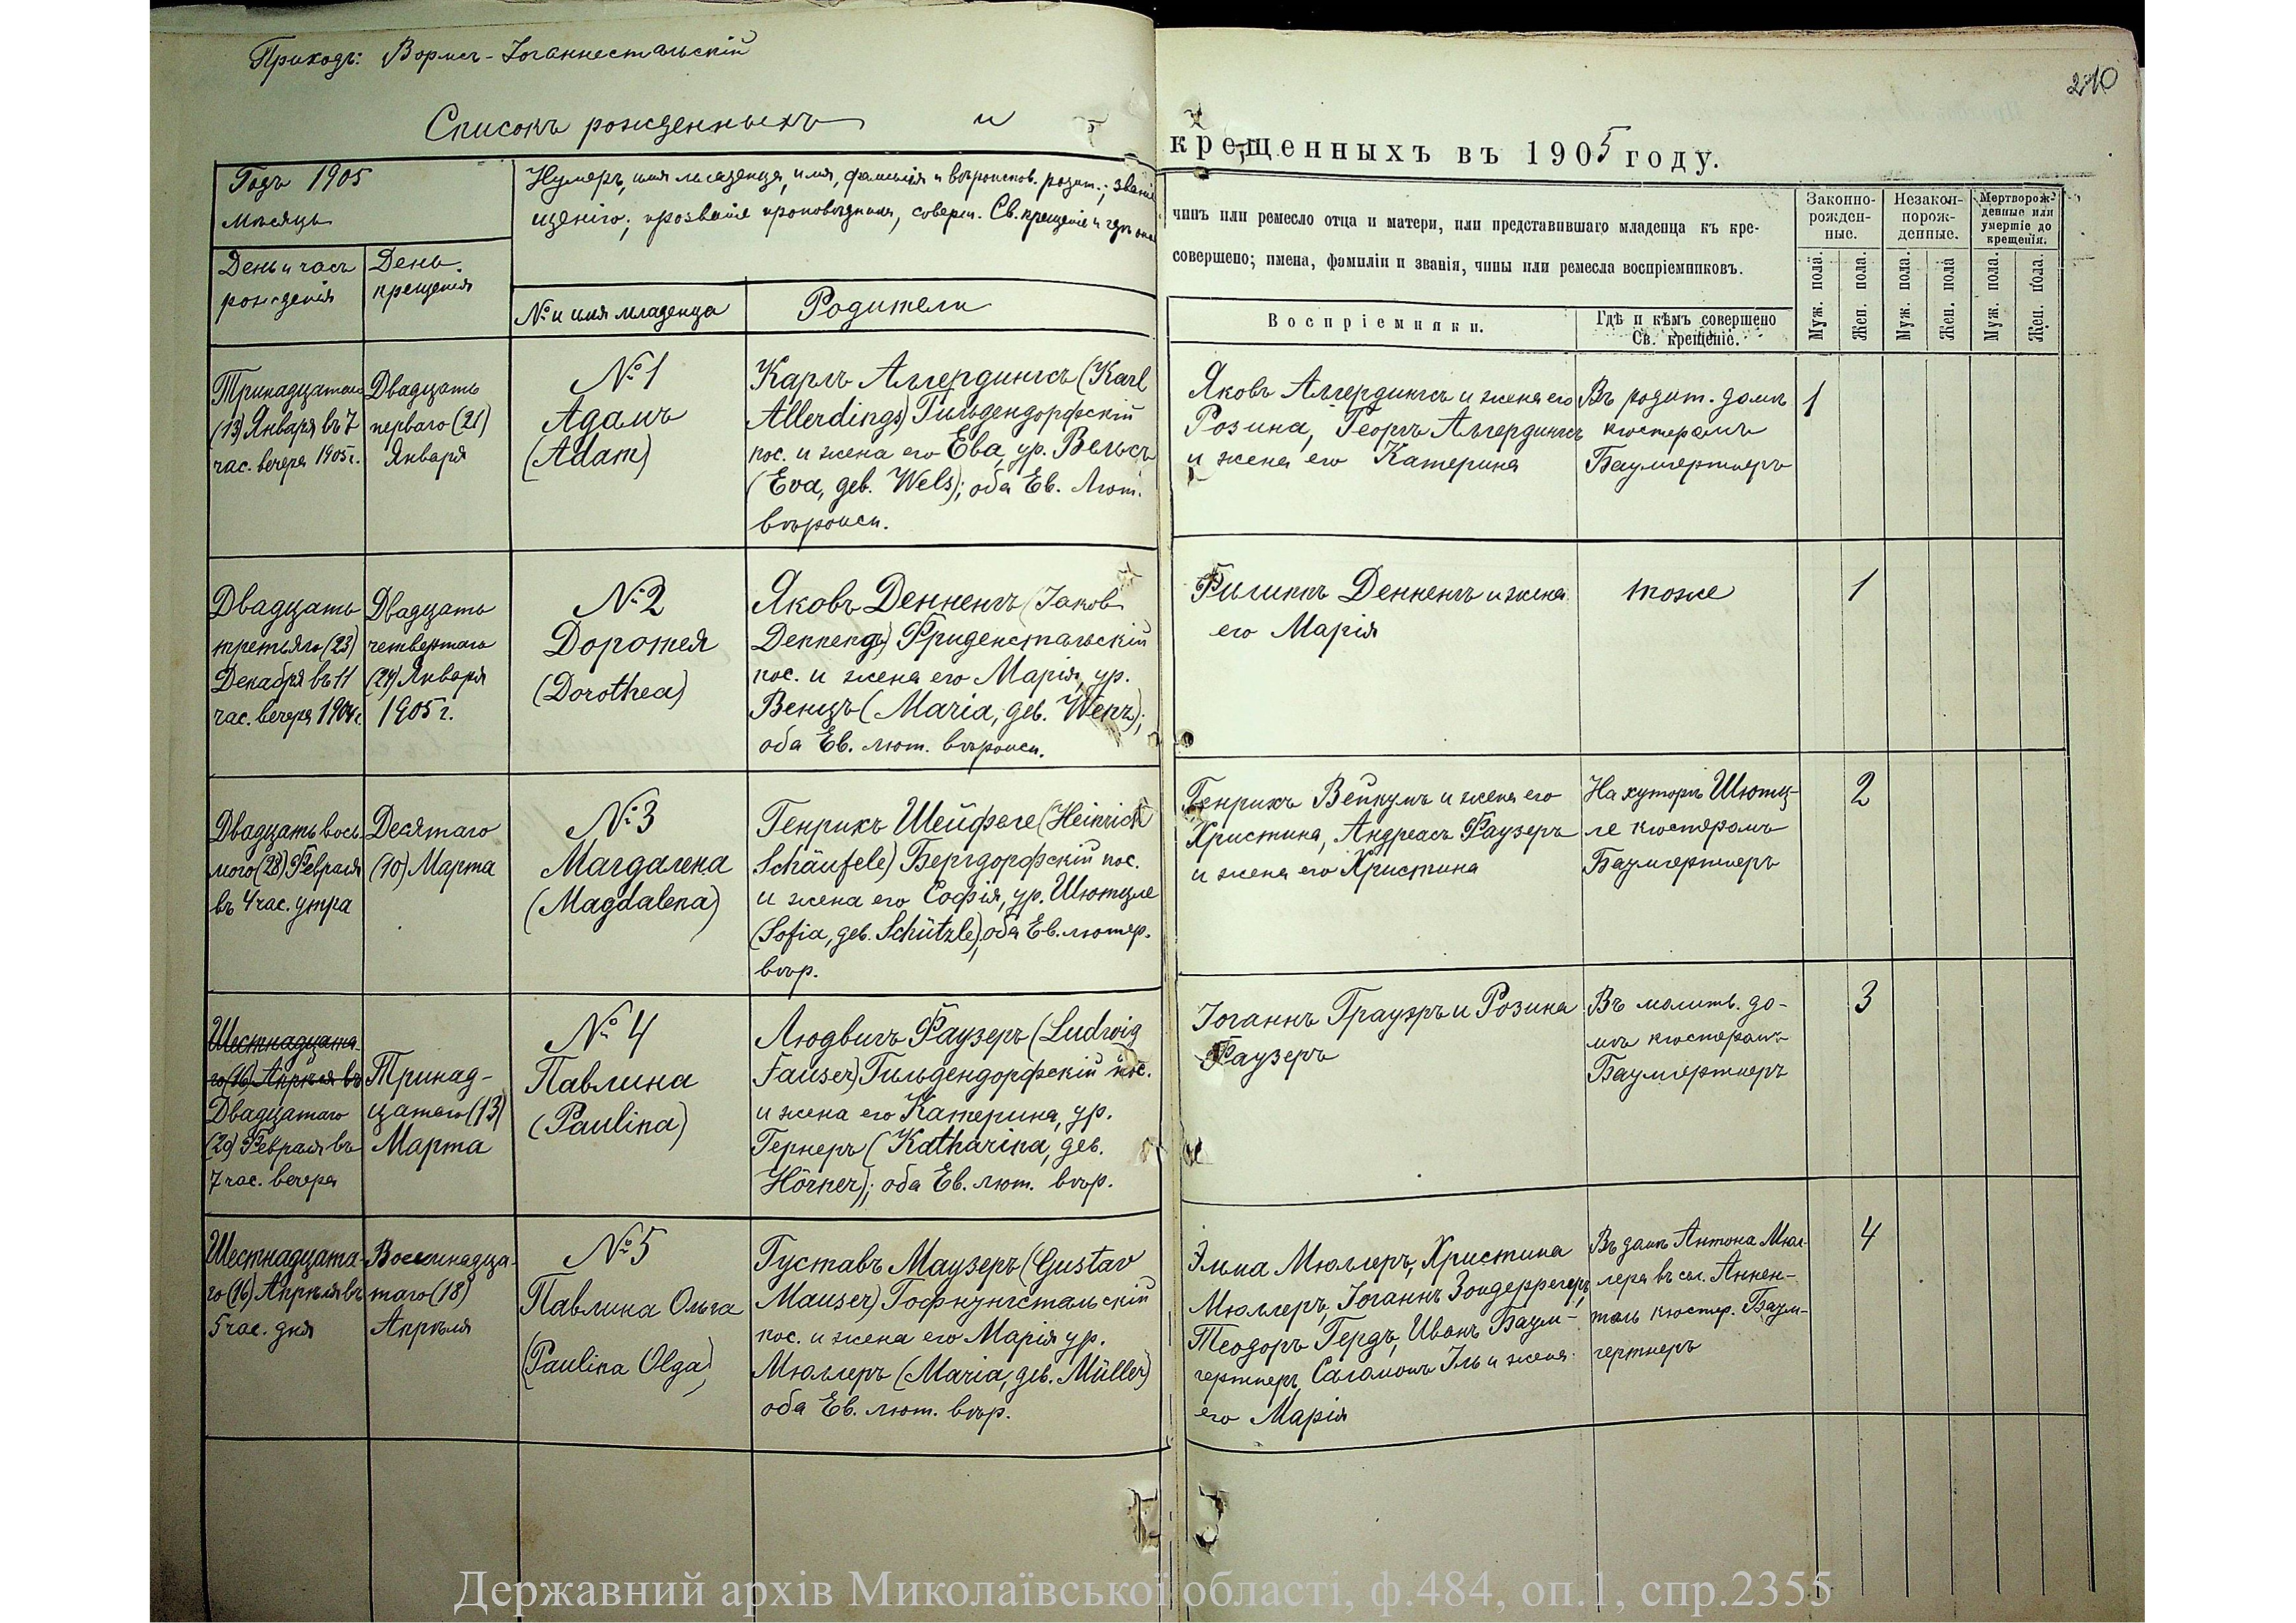 Приходъ: Вормсъ-Іоганнестальскій
210
Списокъ рожденныхъ и
крещенныхъ въ 1905 году.
Годъ 1905
Мѣсяцъ
День и часъ
рожденія
День
крещенія
Нумеръ, имя младенца, имя, фамилія и вѣроисков. родит.; званіе
щенію; прозваніе проповѣдника, соверш. Св. крещеніе и гдѣ оное
№ и имя младенца
Родители
чинъ или ремесло отца и матери, или представившаго младенца къ кре-
совершено; имена, фамиліи и званія, чины или ремесла воспріемниковъ.
Воспріемники.
Гдѣ и кѣмъ совершено
Св. крещеніе.
Законно-
рожден-
ные.
Незакон-
порож-
денные.
Мертворож-
денные или
умершіе до
крещенія.
Муж. пола.
Жен. пола.
Муж. пола.
Жен. пола
Муж. пола.
Жен. пола.
Тринадцатаго
(13) Января въ 7
час. вечера 1905 г.
Двадцать
перваго (21)
Января
№ 1
Адамъ
(Adam)
Карлъ Аллердингсъ (Karl
Allerdings) Гильдендорфскій
пос. и жена его Ева, ур. Вельсъ
(Eva, geb. Wels); оба Ев. Лют.
вѣроисп.
Яковъ Аллердингсъ и жена его
Розина, Георгъ Аллердингсъ
и жена его Катерина
Въ родит. домѣ
кюстеромъ
Баумгертнеръ
1
Двадцать
третьяго (23)
Декабря въ 11
час. вечера 1904 г.
Двадцать
четвертаго
(24) Января
1905 г.
№ 2
Доротея
(Dorothea)
Яковъ Денненгъ (Jakob
Фриденстальскій
пос. и жена его Марія, ур.
Венцъ (Maria, geb. Wenz);
оба Ев. лют. вѣроисп.
Филиппъ Денненгъ и жена
его Марія
тоже
1
Двадцать вось-
мого (28) Февраля
въ 4 час. утра
Десятаго
(10) Марта
№ 3
Магдалена
(Magdalena)
Генрихъ Шейфеле (Heinrich
Schäufele) Бергдорфскій пос.
и жена его Софія, ур. Шютцле
(Sofia, geb. Schützle), оба Ев. лютер.
вѣр.
Генрихъ Вейкумъ и жена его
Христина, Андреасъ Фаузеръ
и жена его Христина
На хуторѣ Шютц-
ле кюстеромъ
Баумгертнеръ
2
Шестнадцата-
го (16) Апрѣля въ
Двадцатаго
(20) Февраля въ
7 час. вечера
Тринад-
цатаго (13)
Марта
№ 4
Павлина
(Paulina)
Людвигъ Фаузеръ (Ludwig
Fauser) Гильдендорфскій пос.
и жена его Катерина, ур.
Гернеръ (Katharina, geb.
Hörner); оба Ев. лют. вѣр.
Іоганнъ Грауэръ и Розина
Фаузеръ
Въ молитв. до-
мѣ кюстеромъ
Баумгертнеръ
3
Шестнадцата-
го (16) Апрѣля въ
5 час. дня
Восемнадца-
таго (18)
Апрѣля
№ 5
Павлина Ольга
(Paulina Olga)
Густавъ Маузеръ (Gustav
Mauser) Гофнунгстальскій
пос. и жена его Марія ур.
Мюллеръ (Maria, geb. Müller)
оба Ев. лют. вѣр.
Эмма Мюллеръ, Христина
Мюллеръ, Іоганнъ Зондеррегеръ,
Теодоръ Гердъ, Иванъ Баум-
гертнеръ, Саломонъ Иль и жена
его Марія
Въ домѣ Антона Мюл-
лера въ сел. Аннен-
таль кюстер. Баум-
гертнеръ
4
Державний архів Миколаївської області, ф.484, оп.1, спр.2355